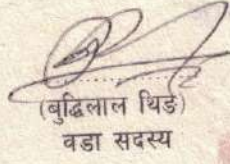 (बुद्धिलाल थिङ)
वडा सदस्य